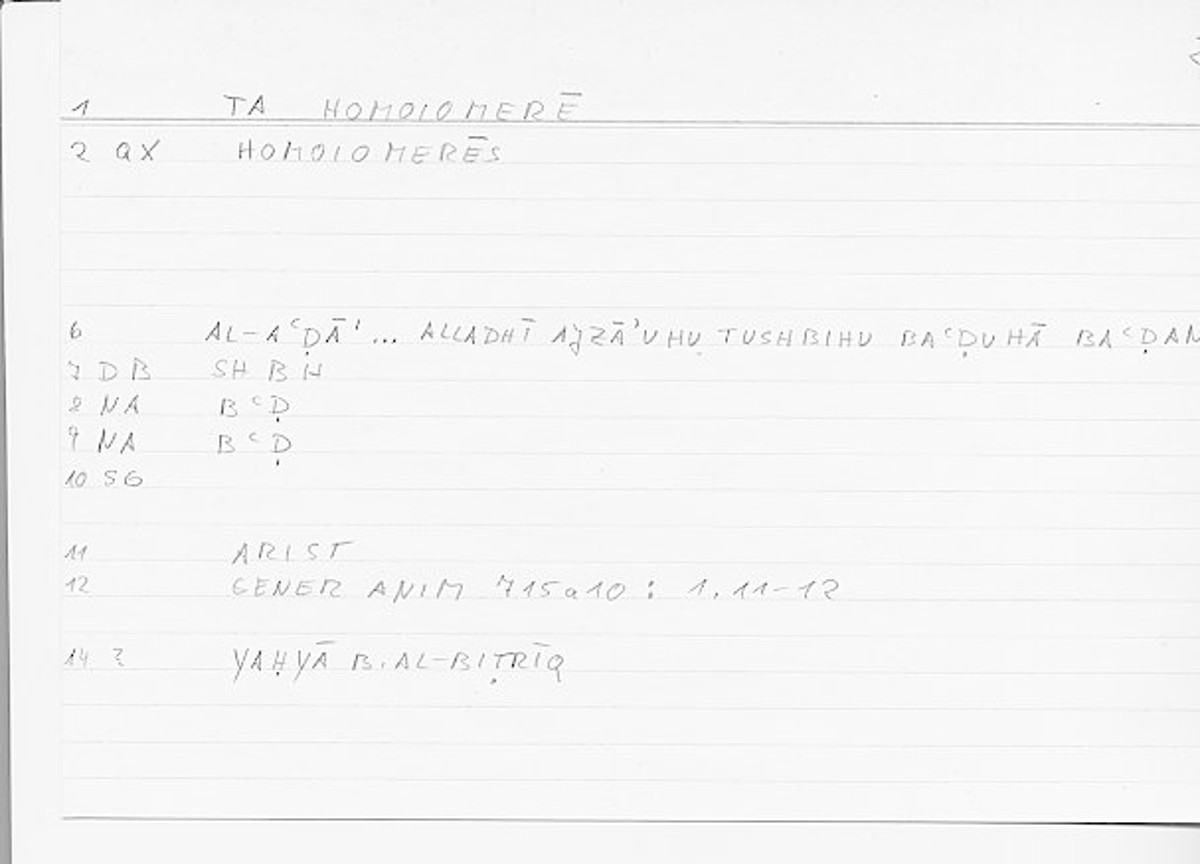 1 TA HOMOIOMERĒ
2 QX HOMOIOMERĒS
6 AL-AʿḌĀʾ... ALLADHĪ AJZĀʾUHU TUSHBIHU BAʿḌUHĀ BAʿḌAN
7 DB SH B H
8 NA B ʿ Ḍ
9 NA B ʿ Ḍ
10 SG
11 ARIST
12 GENER ANIM 715a10 : 1.11-12
14 ? YAḤYĀ B. AL-BIṬRĪQ